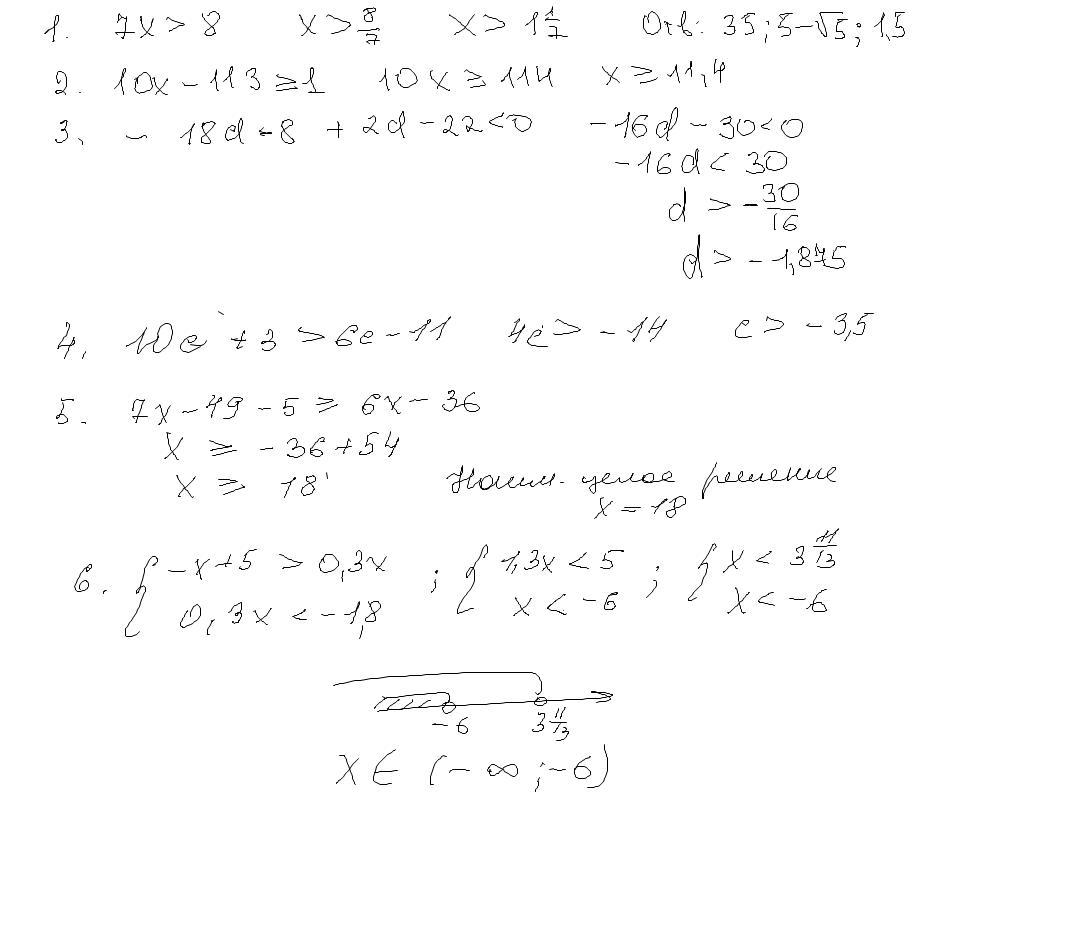 1. 7x > 8 x > 8/7 x > 1 1/7 Отв: 35; 5-√5; 1,5
2. 10x - 113 ≥ 1 10x ≥ 114 x ≥ 11,4
3. - 18d - 8 + 2d - 22 < 0 -16d - 30 < 0
-16d < 30
d > -30/16
d > -1,875
4. 10c + 3 > 6c - 11 4c > -14 c > -3,5
5. 7x - 49 - 5 ≥ 6x - 36
x ≥ -36 + 54
x ≥ 18 Наим. целое решение
x = 18
6. { -x+5 > 0,3x ; { 1,3x < 5 ; { x < 3 11/13
0,3x < -1,8 x < -6 x < -6
-6 3 11/13
x ∈ (-∞; -6)